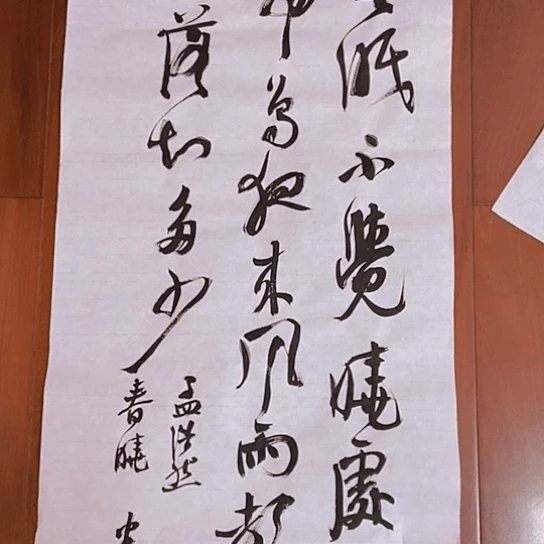 眠不覺曉處
鳥夜来風雨
落知多少
孟浩然
春曉